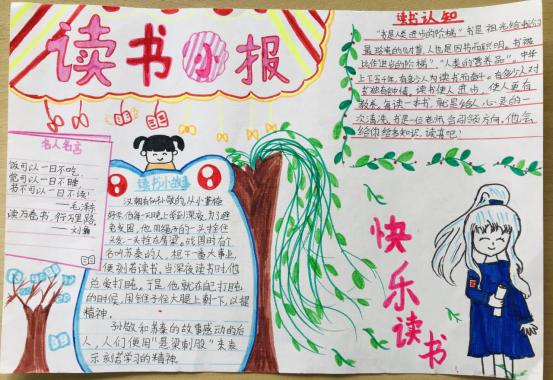 读书小报
名人名言
饭可以一日不吃,
觉可以一日不睡,
书不可以一日不读!
——毛泽东
读万卷书,行万里路
——刘彝
读书小故事
汉朝有孙敬的,从小勤奋
好乐,他每一天晚上学到深夜,为了避
免发困,他用绳子的一头拴住
头发,一头拴在房梁。战国时有个
名叫苏秦的人,想干一番大事业,
便刻苦读书,当深夜读书时,他
总爱打盹,于是,他就在自己打盹
的时候,用锥子往大腿上刺一下,以提
精神。
孙敬和苏秦的故事感动的后
人,人们便用“悬梁刺股”来表
示刻苦学习的精神
读书认知
“书是人类进步的阶梯”书是祖先给我们
最珍贵的财富,人也是因书而聪明。书被
比作进步的阶梯”,“人类的营养品”。中华
上下五千年,有多少人为读书而奋斗。有多少人对
书独有钟情。读书使人进步,使人更有
教养。每读一本书,就是给人心灵的一
次清洗。书是一位老师,会引领方向,他会
给你给多知识。读书吧!
快乐读书